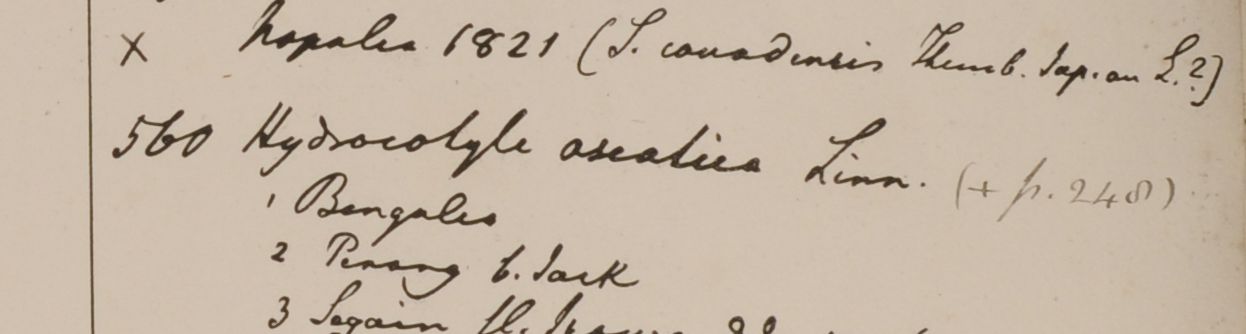 × Napalia 1821 (S. canadensis Thunb. Jap. an L.?)
560 Hydrocotyle asiatica Linn. (+ p. 248)
1 Bengalia
2 Penang b. Jack
3 Segain